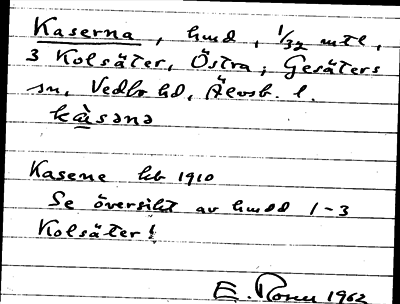 Kaserna, hmd, 1/32 mtl,
3 Kolsäter, Östra, Gesäters
sn, Vedbo hd, Älvsb. l.
kàsəna
Kasene hb 1910
Se översikt av hmdd 1-3
Kolsäter!
E. Rosell 1962